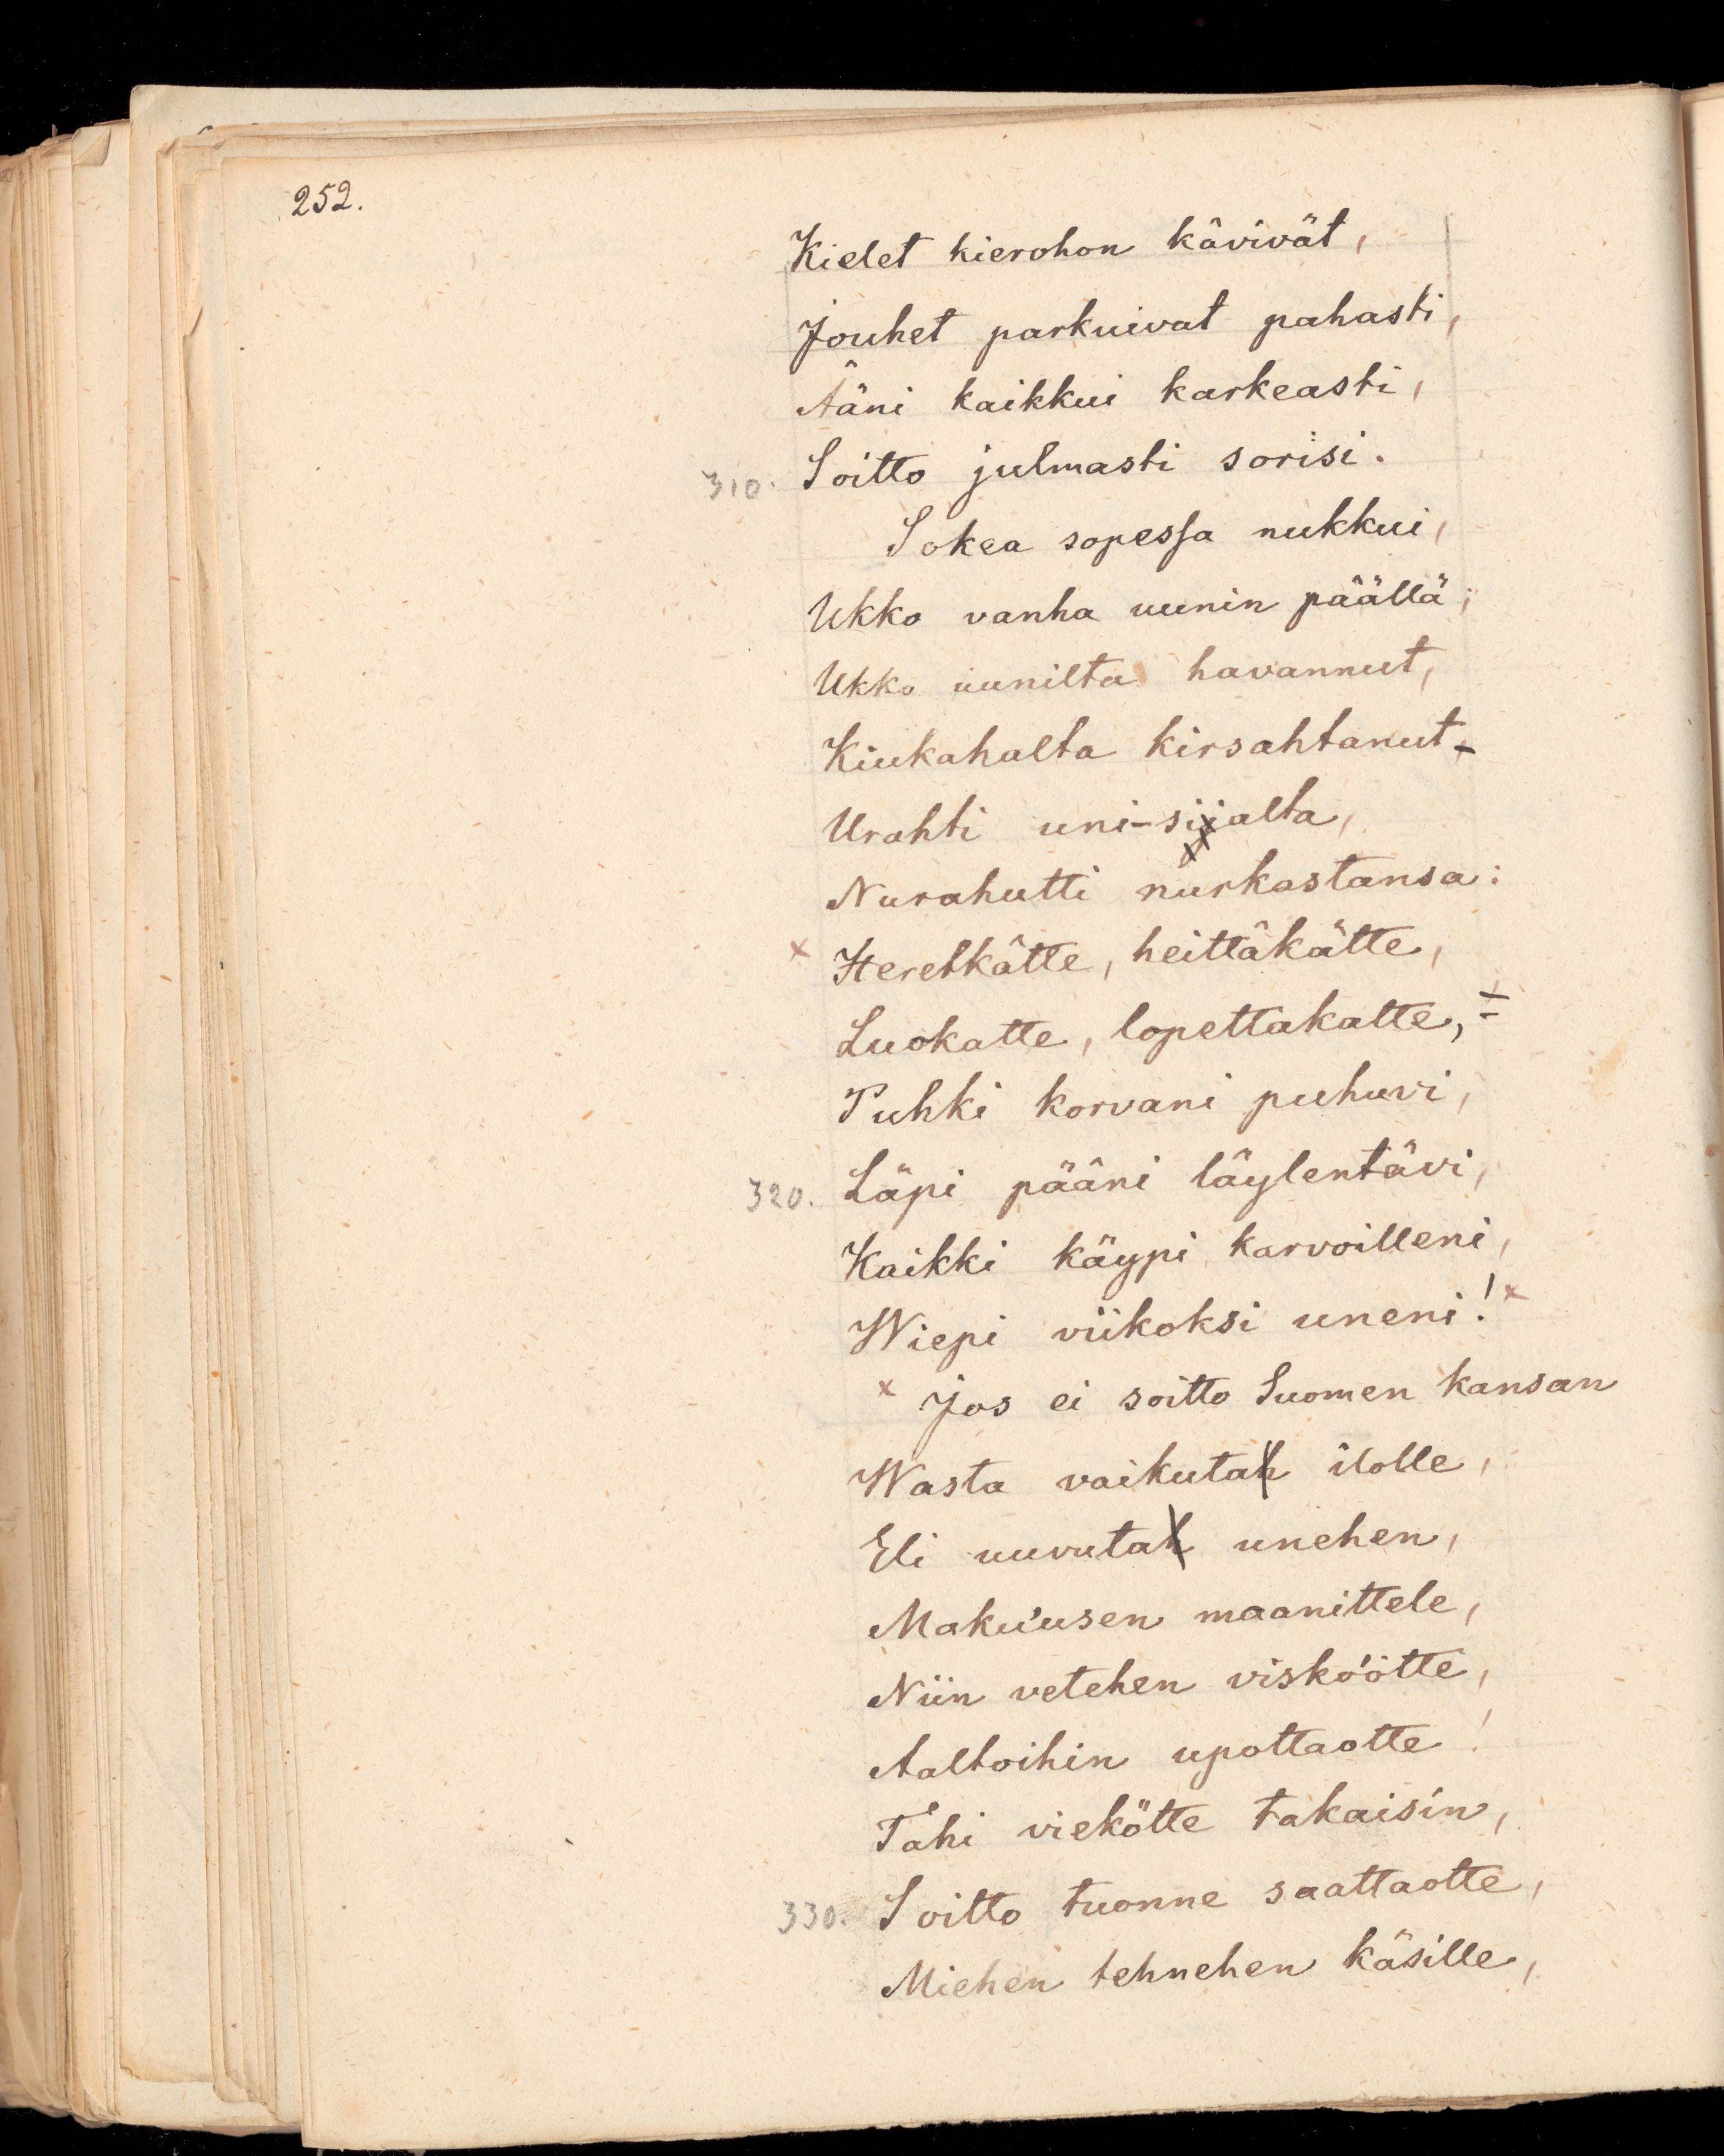 252.
Kielet kierohon kävivät,
Jouhet parkuivat pahasti,
Ääni kaikkui karkeasti,
310. Soitto julmasti sorisi.
Sokea sopeſsa nukkui,
Ukko vanha uunin päällä;
Ukko uunilta havannut,
Kiukahalta kirsahtanut -
Urahti uni-sijalta,
Nurahutti nurkastansa:
× Heretkätte, heittäkätte,
Luokatte, lopettakatte, ÷
Puhki korvani puhuvi,
320. Läpi pääni läylentävi,
Kaikki käypi karvoilleni,
Wiepi viikoksi uneni! ×
× Jos ei soitto Suomen kansan
Wasta vaikutak ilolle,
Eli uuvutak unehen,
Maku'usen maanittele,
Niin vetehen viskö'ötte,
Aaltoihin upottaotte!
Tahi viekötte takaisin,
330. Soitto tuonne saattaotte,
Miehen tehnehen käsille,